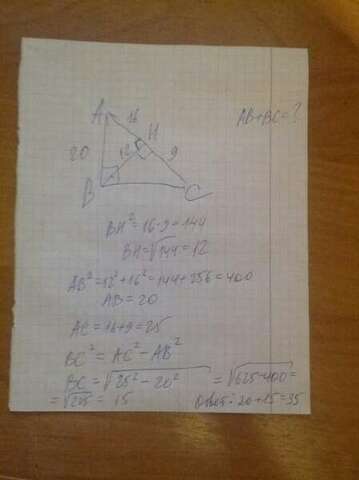 A 16
AB+BC=?
H
20 12 9
B C
BH²=16·9=144
BH=√144=12
AB²=12²+16²=144+256=400
AB=20
AC=16+9=25
BC²=AC²-AB²
BC=√25²-20² =√625-400=
=√225=15
Ответ: 20+15=35